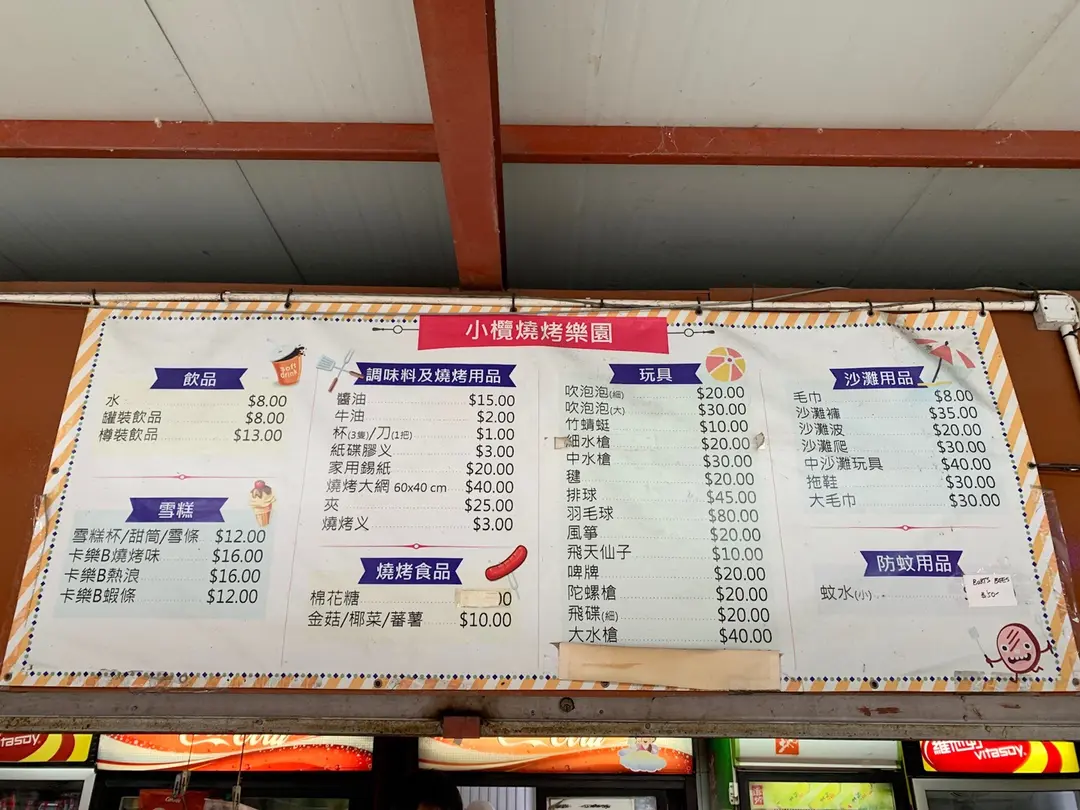 小欖燒烤樂園
飲品
soft drink
水 $8.00
罐裝飲品 $8.00
樽裝飲品 $13.00
雪糕
雪糕杯/甜筒/雪條 $12.00
卡樂B燒烤味 $16.00
卡樂B熱浪 $16.00
卡樂B蝦條 $12.00
調味料及燒烤用品
醬油 $15.00
牛油 $2.00
杯(3隻)/刀(1把) $1.00
紙碟膠义 $3.00
家用錫紙 $20.00
燒烤大網 60x40 cm $40.00
夾 $25.00
燒烤义 $3.00
燒烤食品
棉花糖 00
金菇/椰菜/蕃薯 $10.00
玩具
吹泡泡(細) $20.00
吹泡泡(大) $30.00
竹蜻蜓 $10.00
細水槍 $20.00
中水槍 $30.00
毽 $20.00
排球 $45.00
羽毛球 $80.00
風箏 $20.00
飛天仙子 $10.00
啤牌 $20.00
陀螺槍 $20.00
飛碟(細) $20.00
大水槍 $40.00
沙灘用品
毛巾 $8.00
沙灘褲 $35.00
沙灘波 $20.00
沙灘爬 $30.00
中沙灘玩具 $40.00
拖鞋 $30.00
大毛巾 $30.00
防蚊用品
蚊水(小)
BURTS BEES
tasoy.
維他奶 vitasoy.